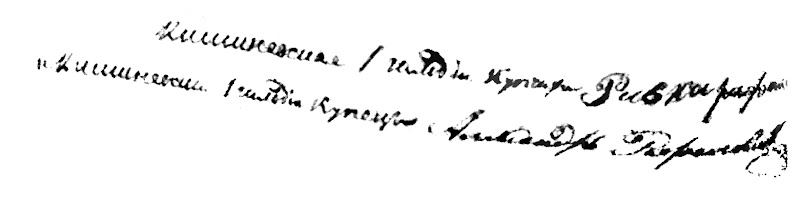 Кишиневская 1 гильдіи Купчиха Ривка
и Кишиневскій 1 гильдіи Купецъ Александръ